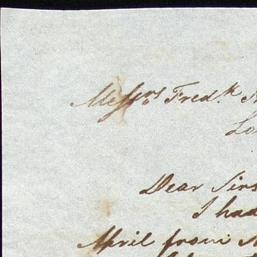 Messrs Fredk
Lo
Dear Sirs
I had
April from